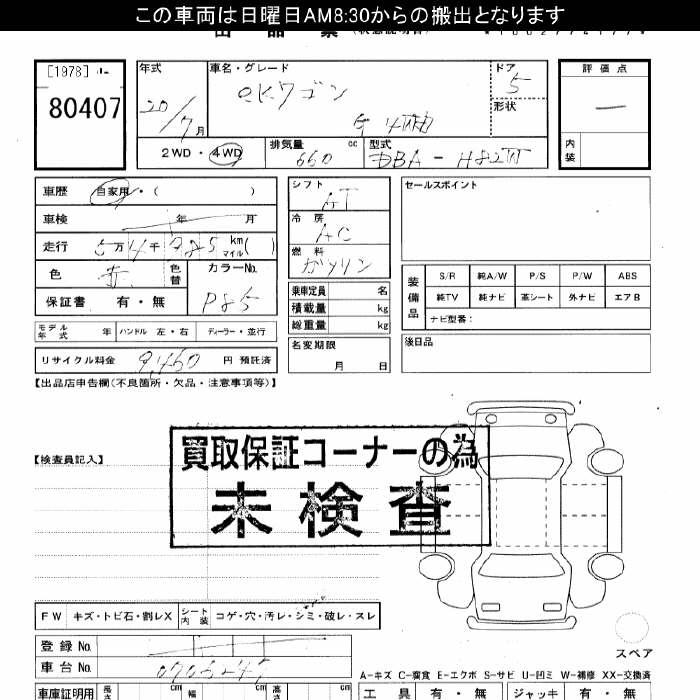 この車両は日曜日AM8:30からの搬出となります
[1978]
80407
年式
20/7月
車名・グレード
eKワゴン
G 4WD
ドア
5
形状
評価点
内装
2WD・4WD
排気量
660
cc
型式
DBA-H82W
車歴
自家用・(　　)
車検
年
月
走行
5万4千985
km
マイル
(　)
色
赤
色替
カラーNo.
P85
保証書
有・無
モデル年式
年
ハンドル 左・右
ディーラー・並行
リサイクル料金
9,460
円 預託済
シフト
AT
冷房
AC
燃料
ガソリン
乗車定員
名
積載量
kg
総重量
kg
名変期限
月
日
セールスポイント
装備品
S/R
純A/W
P/S
P/W
ABS
純TV
純ナビ
革シート
外ナビ
エアB
ナビ型番:
後日品
【出品店申告欄(不良箇所・欠品・注意事項等)】
【検査員記入】
買取保証コーナーの為
未検査
FW
キズ・トビ石・割レX
シート内装
コゲ・穴・汚レ・シミ・破レ・スレ
登録No.
車台No.
0703247
スペア
A-キズ C-腐食 E-エクボ S-サビ U-凹ミ W-補修 XX-交換済
車庫証明用
長さ
cm
幅
cm
高さ
cm
工具
有・無
ジャッキ
有・無